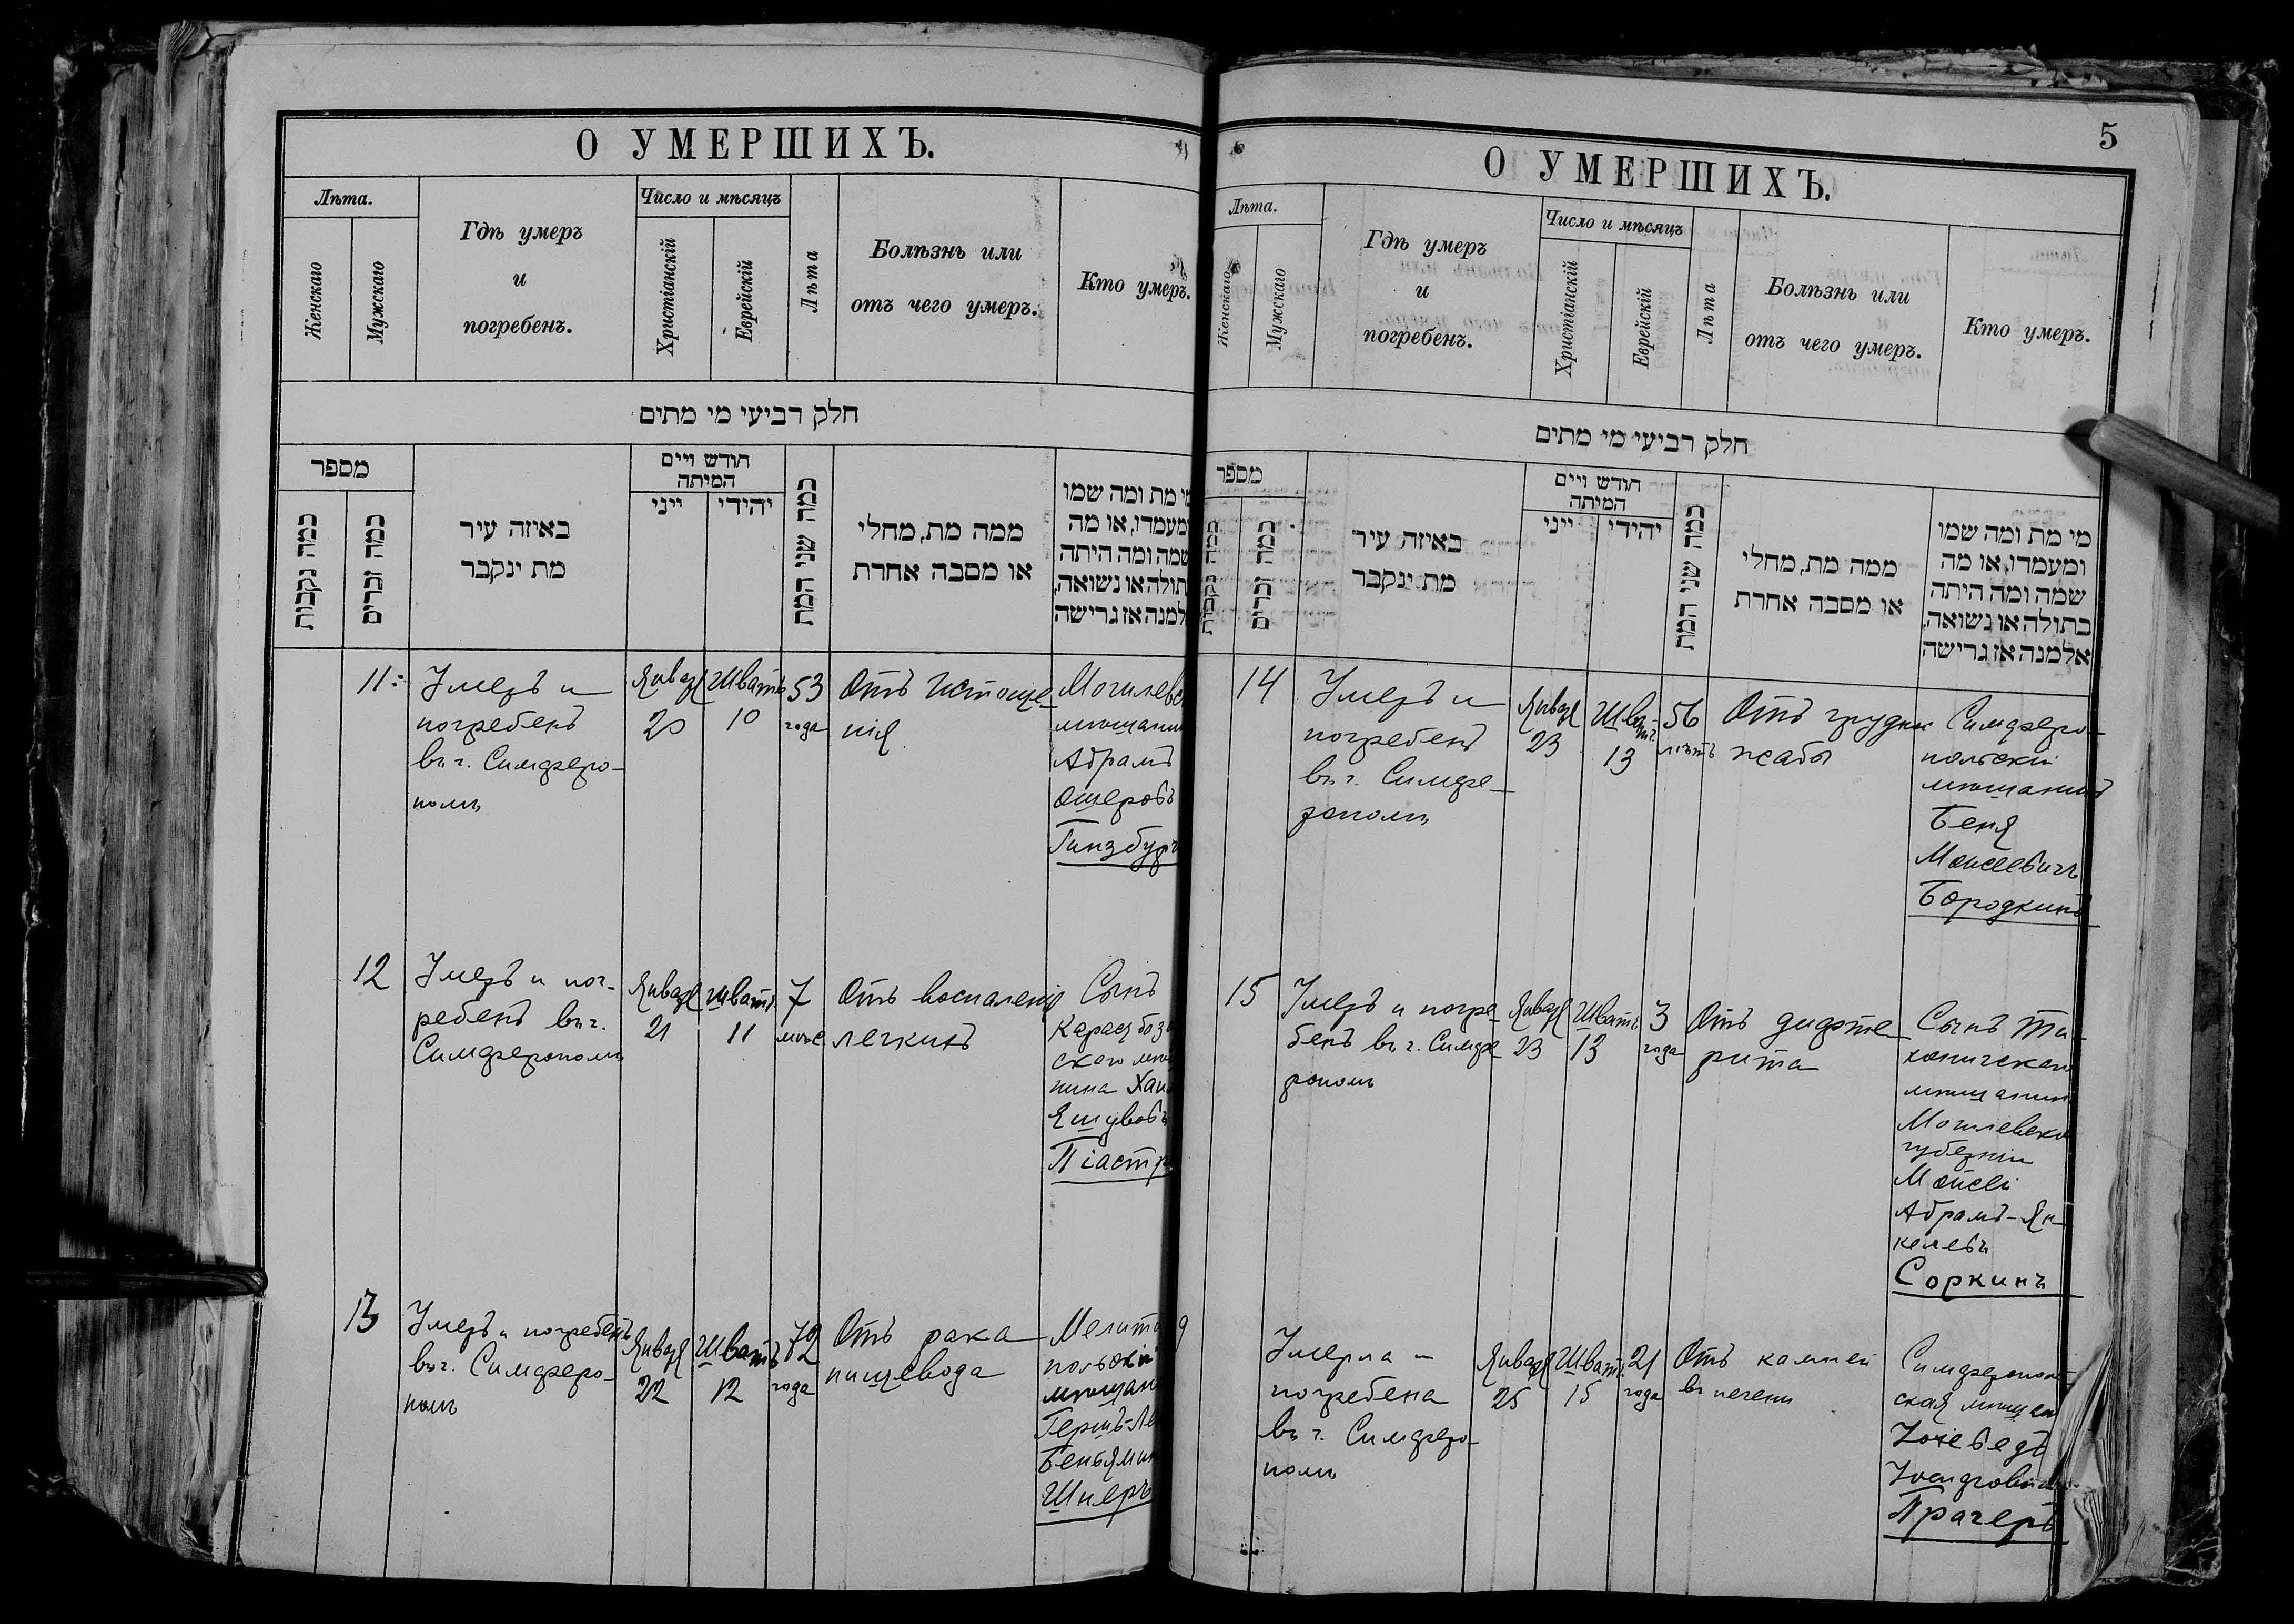 О УМЕРШИХЪ.
Лѣта.
Женскаго
Мужскаго
Гдѣ умеръ
и
погребенъ.
Число и мѣсяцъ
Христіанскій
Еврейскій
Лѣта
Болѣзнь или
отъ чего умеръ.
Кто умеръ.
חלק רביעי מי מתים
מספר
כמה נקבות
כמה זכרים
באיזה עיר
מת ינקבר
חודש ויים
המיתה
ייני
יהידי
כמה שני המת
ממה מת, מחלי
או מסבה אחרת
מי מת ומה שמו
ומעמדו, או מה
שמה ומה היתה
בתולה או נשואה,
אלמנה אז גרישה
11
Умеръ и
погребенъ
въ г. Симферо-
полѣ
Январ
20
Шватъ
10
53
года
Отъ истоще-
нія
Могилевс
мѣщанин
Абрамъ
Ошеровъ
Гинзбургъ
12
Умеръ и пог-
ребенъ въ г.
Симферополѣ
Январ
21
Шватъ
11
7
мѣс
Отъ воспаленія
легкихъ
Сынъ
Карасубаз
ского мѣщ
нина Хаи
Яшувовъ
Піастр
13
Умеръ и погребенъ
въ г. Симферо-
полѣ
Январ
22
Шватъ
12
72
года
Отъ рака
пищевода
Мелито
польскій
мѣщан
Гершъ-Ле
Беньямин
Шнеръ
5
О УМЕРШИХЪ.
Лѣта.
Женскаго
Мужскаго
Гдѣ умеръ
и
погребенъ.
Число и мѣсяцъ
Христіанскій
Еврейскій
Лѣта
Болѣзнь или
отъ чего умеръ.
Кто умеръ.
חלק רביעי מי מתים
מספר
כמה נקבות
כמה זכרים
באיזה עיר
מת ינקבר
חודש ויים
המיתה
ייני
יהידי
כמה שני המת
ממה מת, מחלי
או מסבה אחרת
מי מת ומה שמו
ומעמדו, או מה
שמה ומה היתה
בתולה או נשואה,
אלמנה אז גרישה
14
Умеръ и
погребенъ
въ г. Симфе-
рополѣ
Январ
23
Шва-
тъ
13
56
лѣтъ
Отъ грудн
жабы
Симферо-
польскій
мѣщанинъ
Беня
Моисеевичъ
Бородкинъ
15
Умеръ и погре-
бенъ въ г. Симфе
рополѣ
Январ
23
Шватъ
13
3
года
Отъ дифте-
рита
Сынъ
мѣщанин
Могилевско
губерніи
Мойсей
Абрамъ-Ян-
келевъ
Соркинъ
9
Умерла и
погребена
въ г. Симферо-
полѣ
Январ
25
Шватъ
15
21
года
Отъ камней
въ печени
Симферополь
ская мѣщан
Хоѣведъ
Іосифовна
Прагеръ